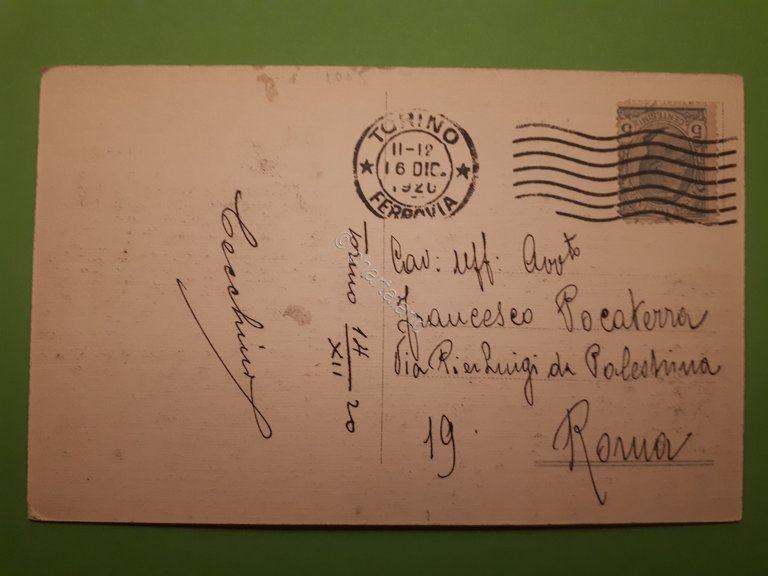 1005
TORINO
11-12
16 DIC.
1920
FERROVIA
5 CENTESIMI 5
Cecchino
Torino 14/XII 20
Cav: Uff: Avvto
Francesco Pocaterra
Via Pier Luigi da Palestrina
19.
Roma